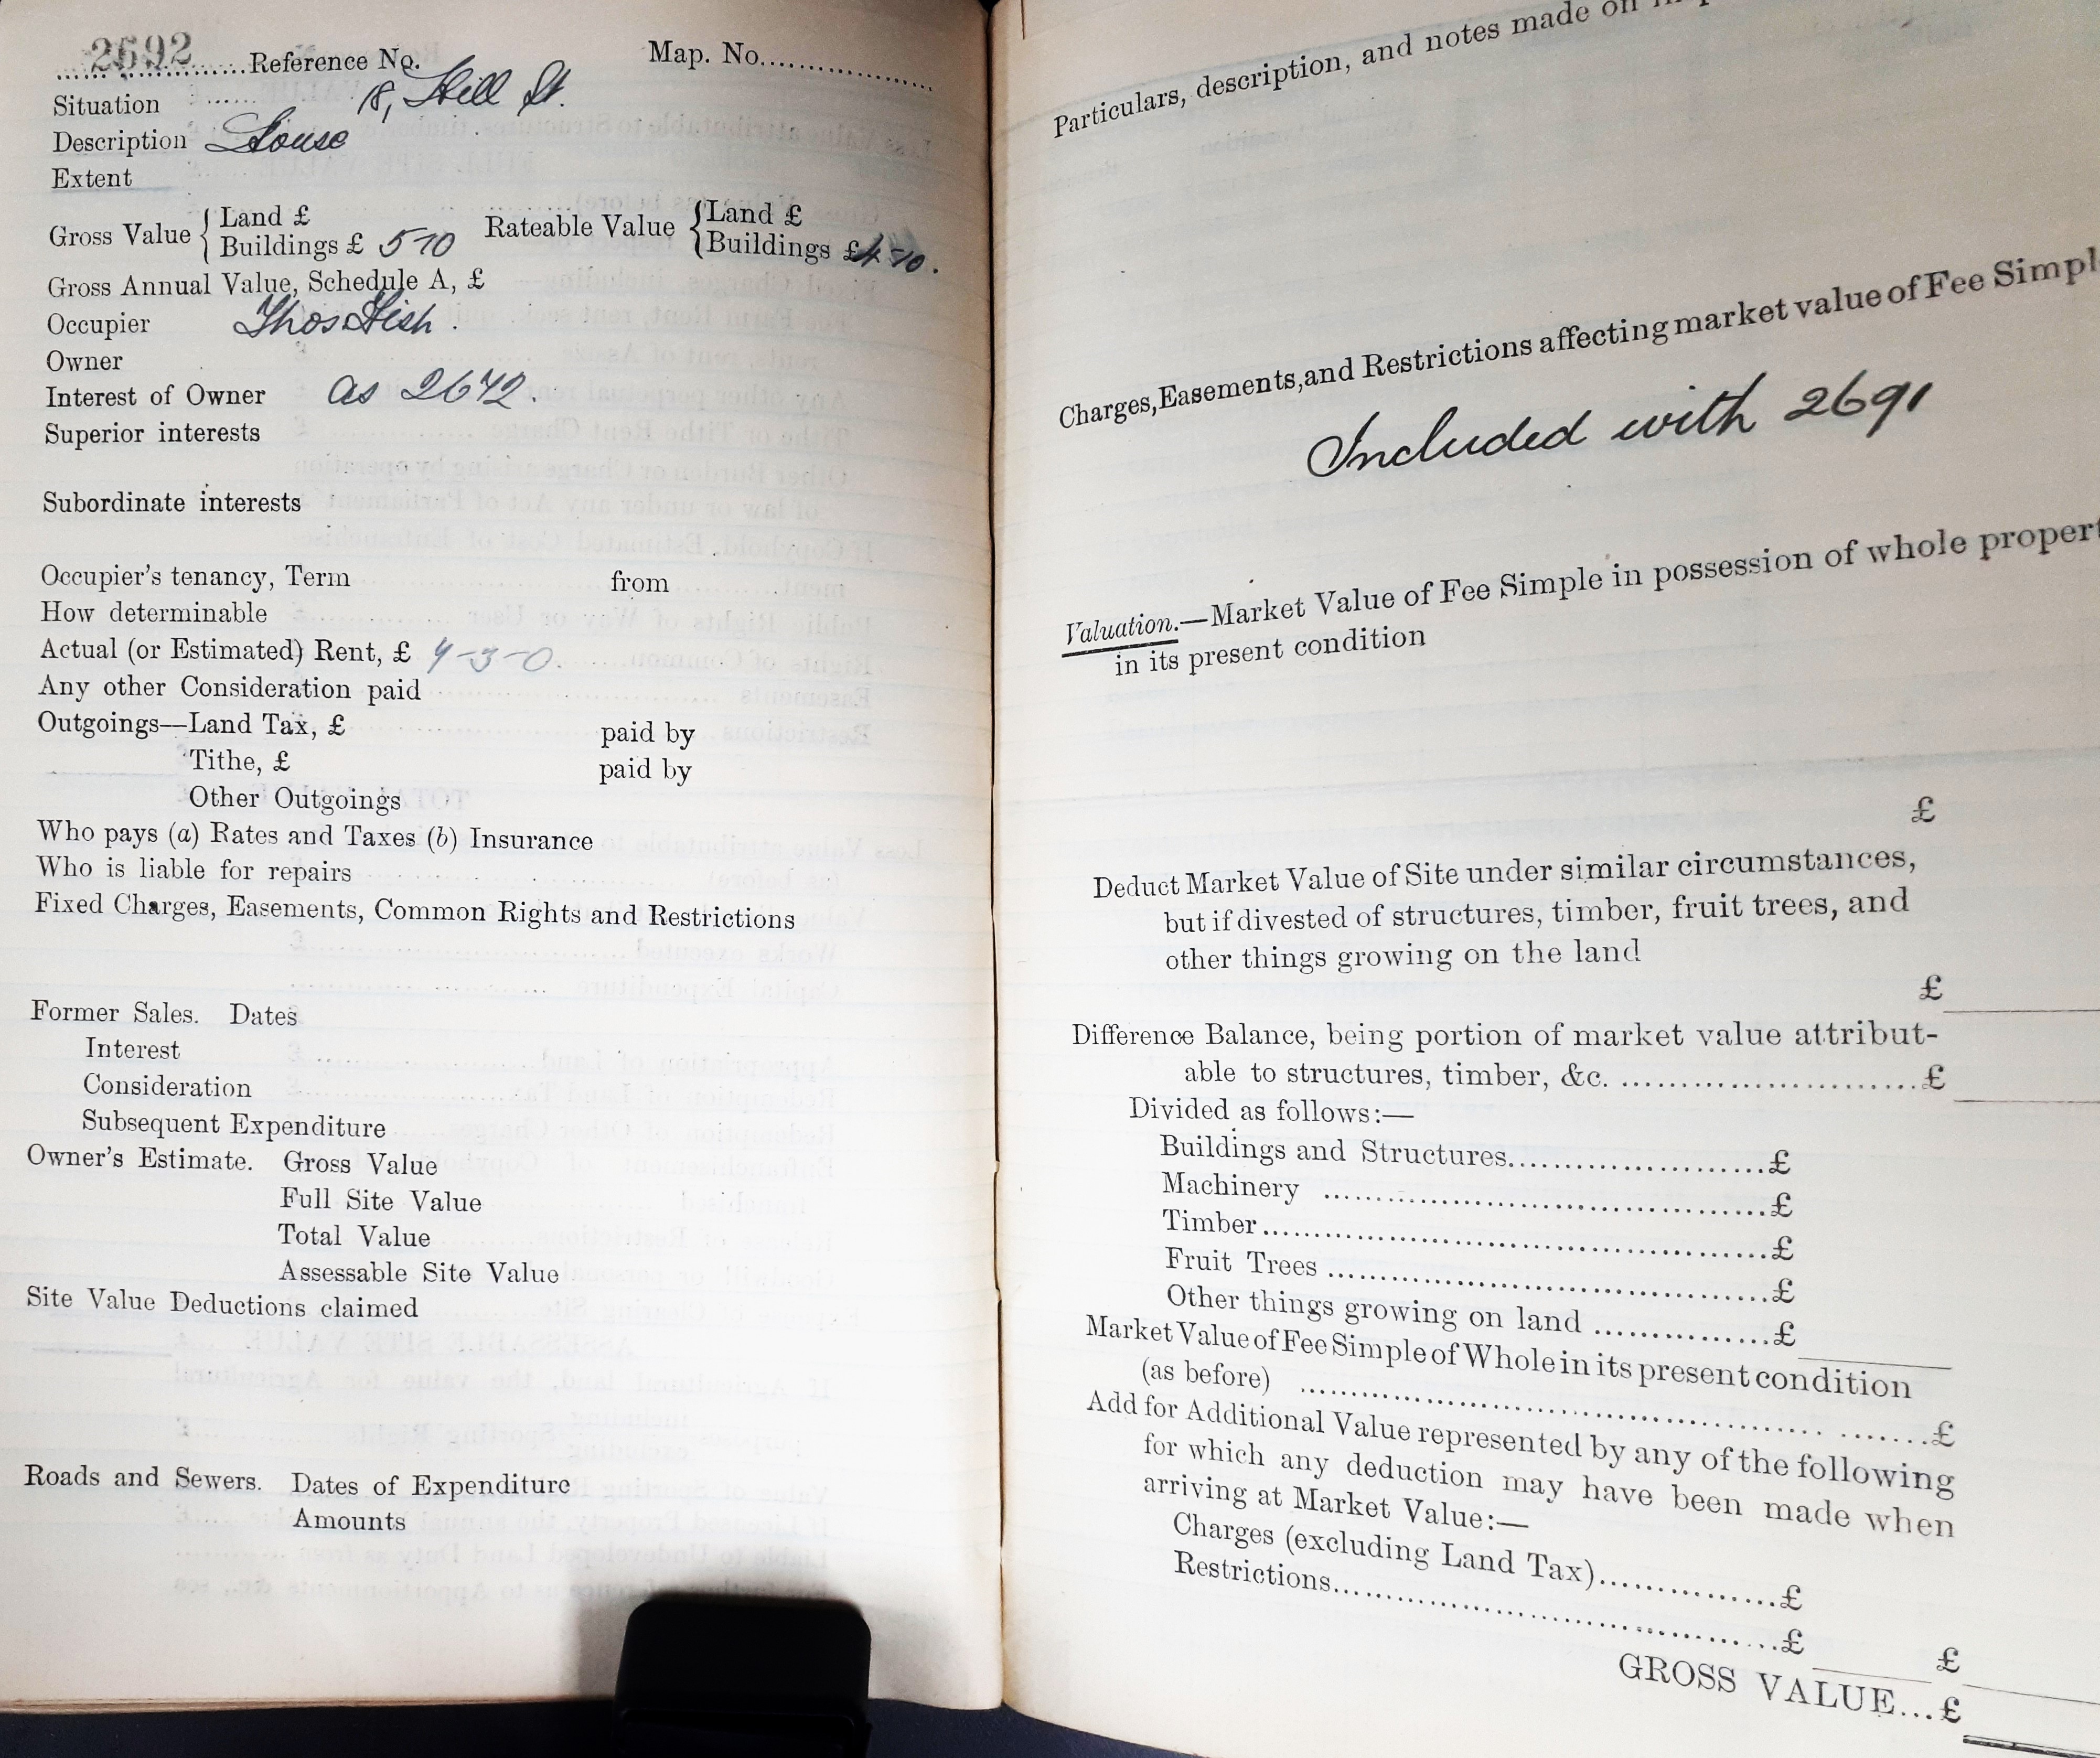 2692 Reference No. Map. No.
Situation 18, Hill St.
Description House
Extent
Gross Value { Land £ Rateable Value { Land £
Buildings £ 5-10 Buildings £4-10.
Gross Annual Value, Schedule A, £
Occupier Thos Fish.
Owner
Interest of Owner as 2642.
Superior interests
Subordinate interests
Occupier's tenancy, Term from
How determinable
Actual (or Estimated) Rent, £ 9-3-0.
Any other Consideration paid
Outgoings—Land Tax, £ paid by
Tithe, £ paid by
Other Outgoings
Who pays (a) Rates and Taxes (b) Insurance
Who is liable for repairs
Fixed Charges, Easements, Common Rights and Restrictions
Former Sales. Dates
Interest
Consideration
Subsequent Expenditure
Owner's Estimate. Gross Value
Full Site Value
Total Value
Assessable Site Value
Site Value Deductions claimed
Roads and Sewers. Dates of Expenditure
Amounts
Particulars, description, and notes made on
Charges, Easements, and Restrictions affecting market value of Fee Simpl
Included with 2691
Valuation.—Market Value of Fee Simple in possession of whole propert
in its present condition
£
Deduct Market Value of Site under similar circumstances,
but if divested of structures, timber, fruit trees, and
other things growing on the land
£
Difference Balance, being portion of market value attribut-
able to structures, timber, &c. ........................£
Divided as follows:—
Buildings and Structures......................£
Machinery ......................£
Timber......................£
Fruit Trees ......................£
Other things growing on land ...............£
Market Value of Fee Simple of Whole in its present condition
(as before) ......................£
Add for Additional Value represented by any of the following
for which any deduction may have been made when
arriving at Market Value:—
Charges (excluding Land Tax)...............£
Restrictions......................£
£
GROSS VALUE...£